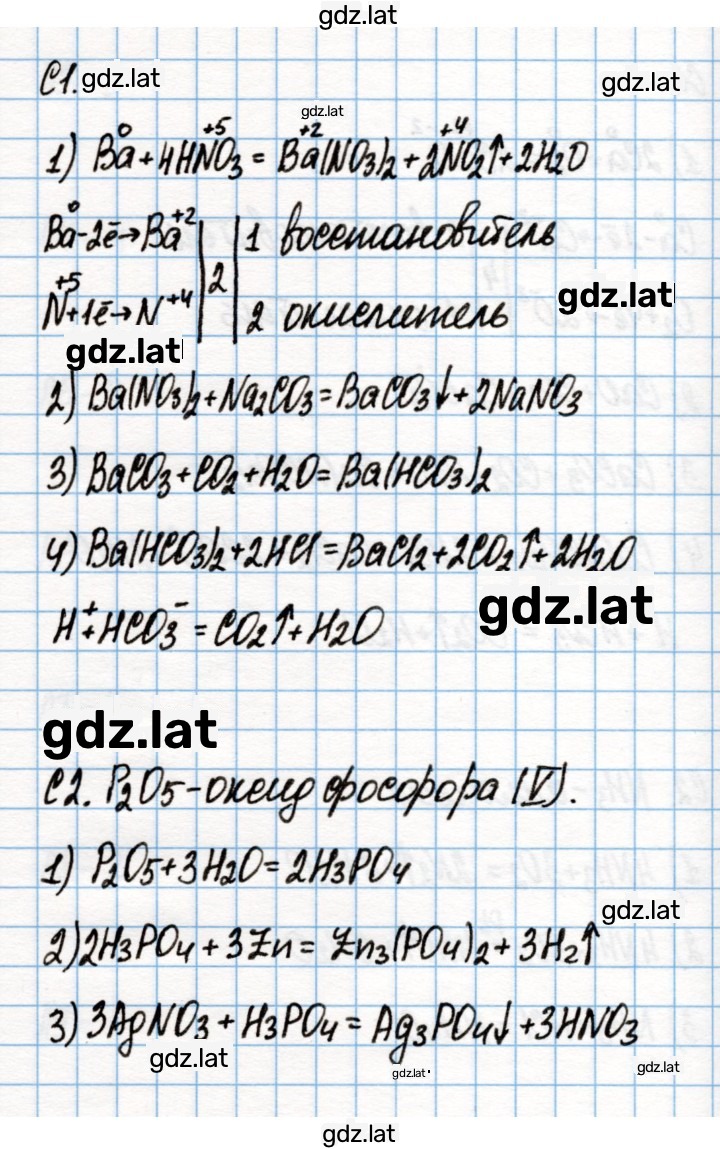 gdz.lat
С1. gdz.lat
gdz.lat
gdz.lat
1) Ba⁰ + 4HN⁺⁵O₃ = Ba⁺²(NO₃)₂ + 2N⁺⁴O₂↑ + 2H₂O
Ba⁰ - 2ē → Ba⁺² | 2 | 1 восстановитель
N⁺⁵ + 1ē → N⁺⁴ | 2 окислитель
gdz.lat
gdz.lat
2) Ba(NO₃)₂ + Na₂CO₃ = BaCO₃↓ + 2NaNO₃
3) BaCO₃ + CO₂ + H₂O = Ba(HCO₃)₂
4) Ba(HCO₃)₂ + 2HCl = BaCl₂ + 2CO₂↑ + 2H₂O
gdz.lat
H⁺ + HCO₃⁻ = CO₂↑ + H₂O
gdz.lat
С2. P₂O₅ - оксид фосфора (V).
1) P₂O₅ + 3H₂O = 2H₃PO₄
gdz.lat
2) 2H₃PO₄ + 3Zn = Zn₃(PO₄)₂ + 3H₂↑
3) 3AgNO₃ + H₃PO₄ = Ag₃PO₄↓ + 3HNO₃
gdz.lat
gdz.lat
gdz.lat
gdz.lat